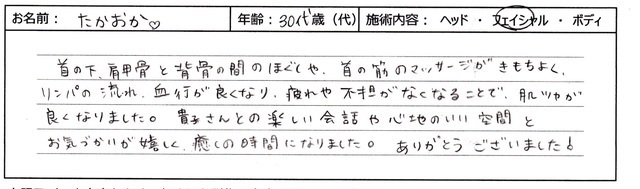 お名前： たかおか♡ 年齢：30代歳（代） 施術内容： ヘッド ・ フェイシャル ・ ボディ
首の下、肩甲骨と背骨の間のほぐしや、首の筋のマッサージがきもちよく、
リンパの流れ、血行が良くなり、疲れや不担がなくなることで、肌ツヤが
良くなりました。貴子さんとの楽しい会話や心地のいい空間と
お気づかいが嬉しく、癒しの時間になりました。 ありがとうございました！